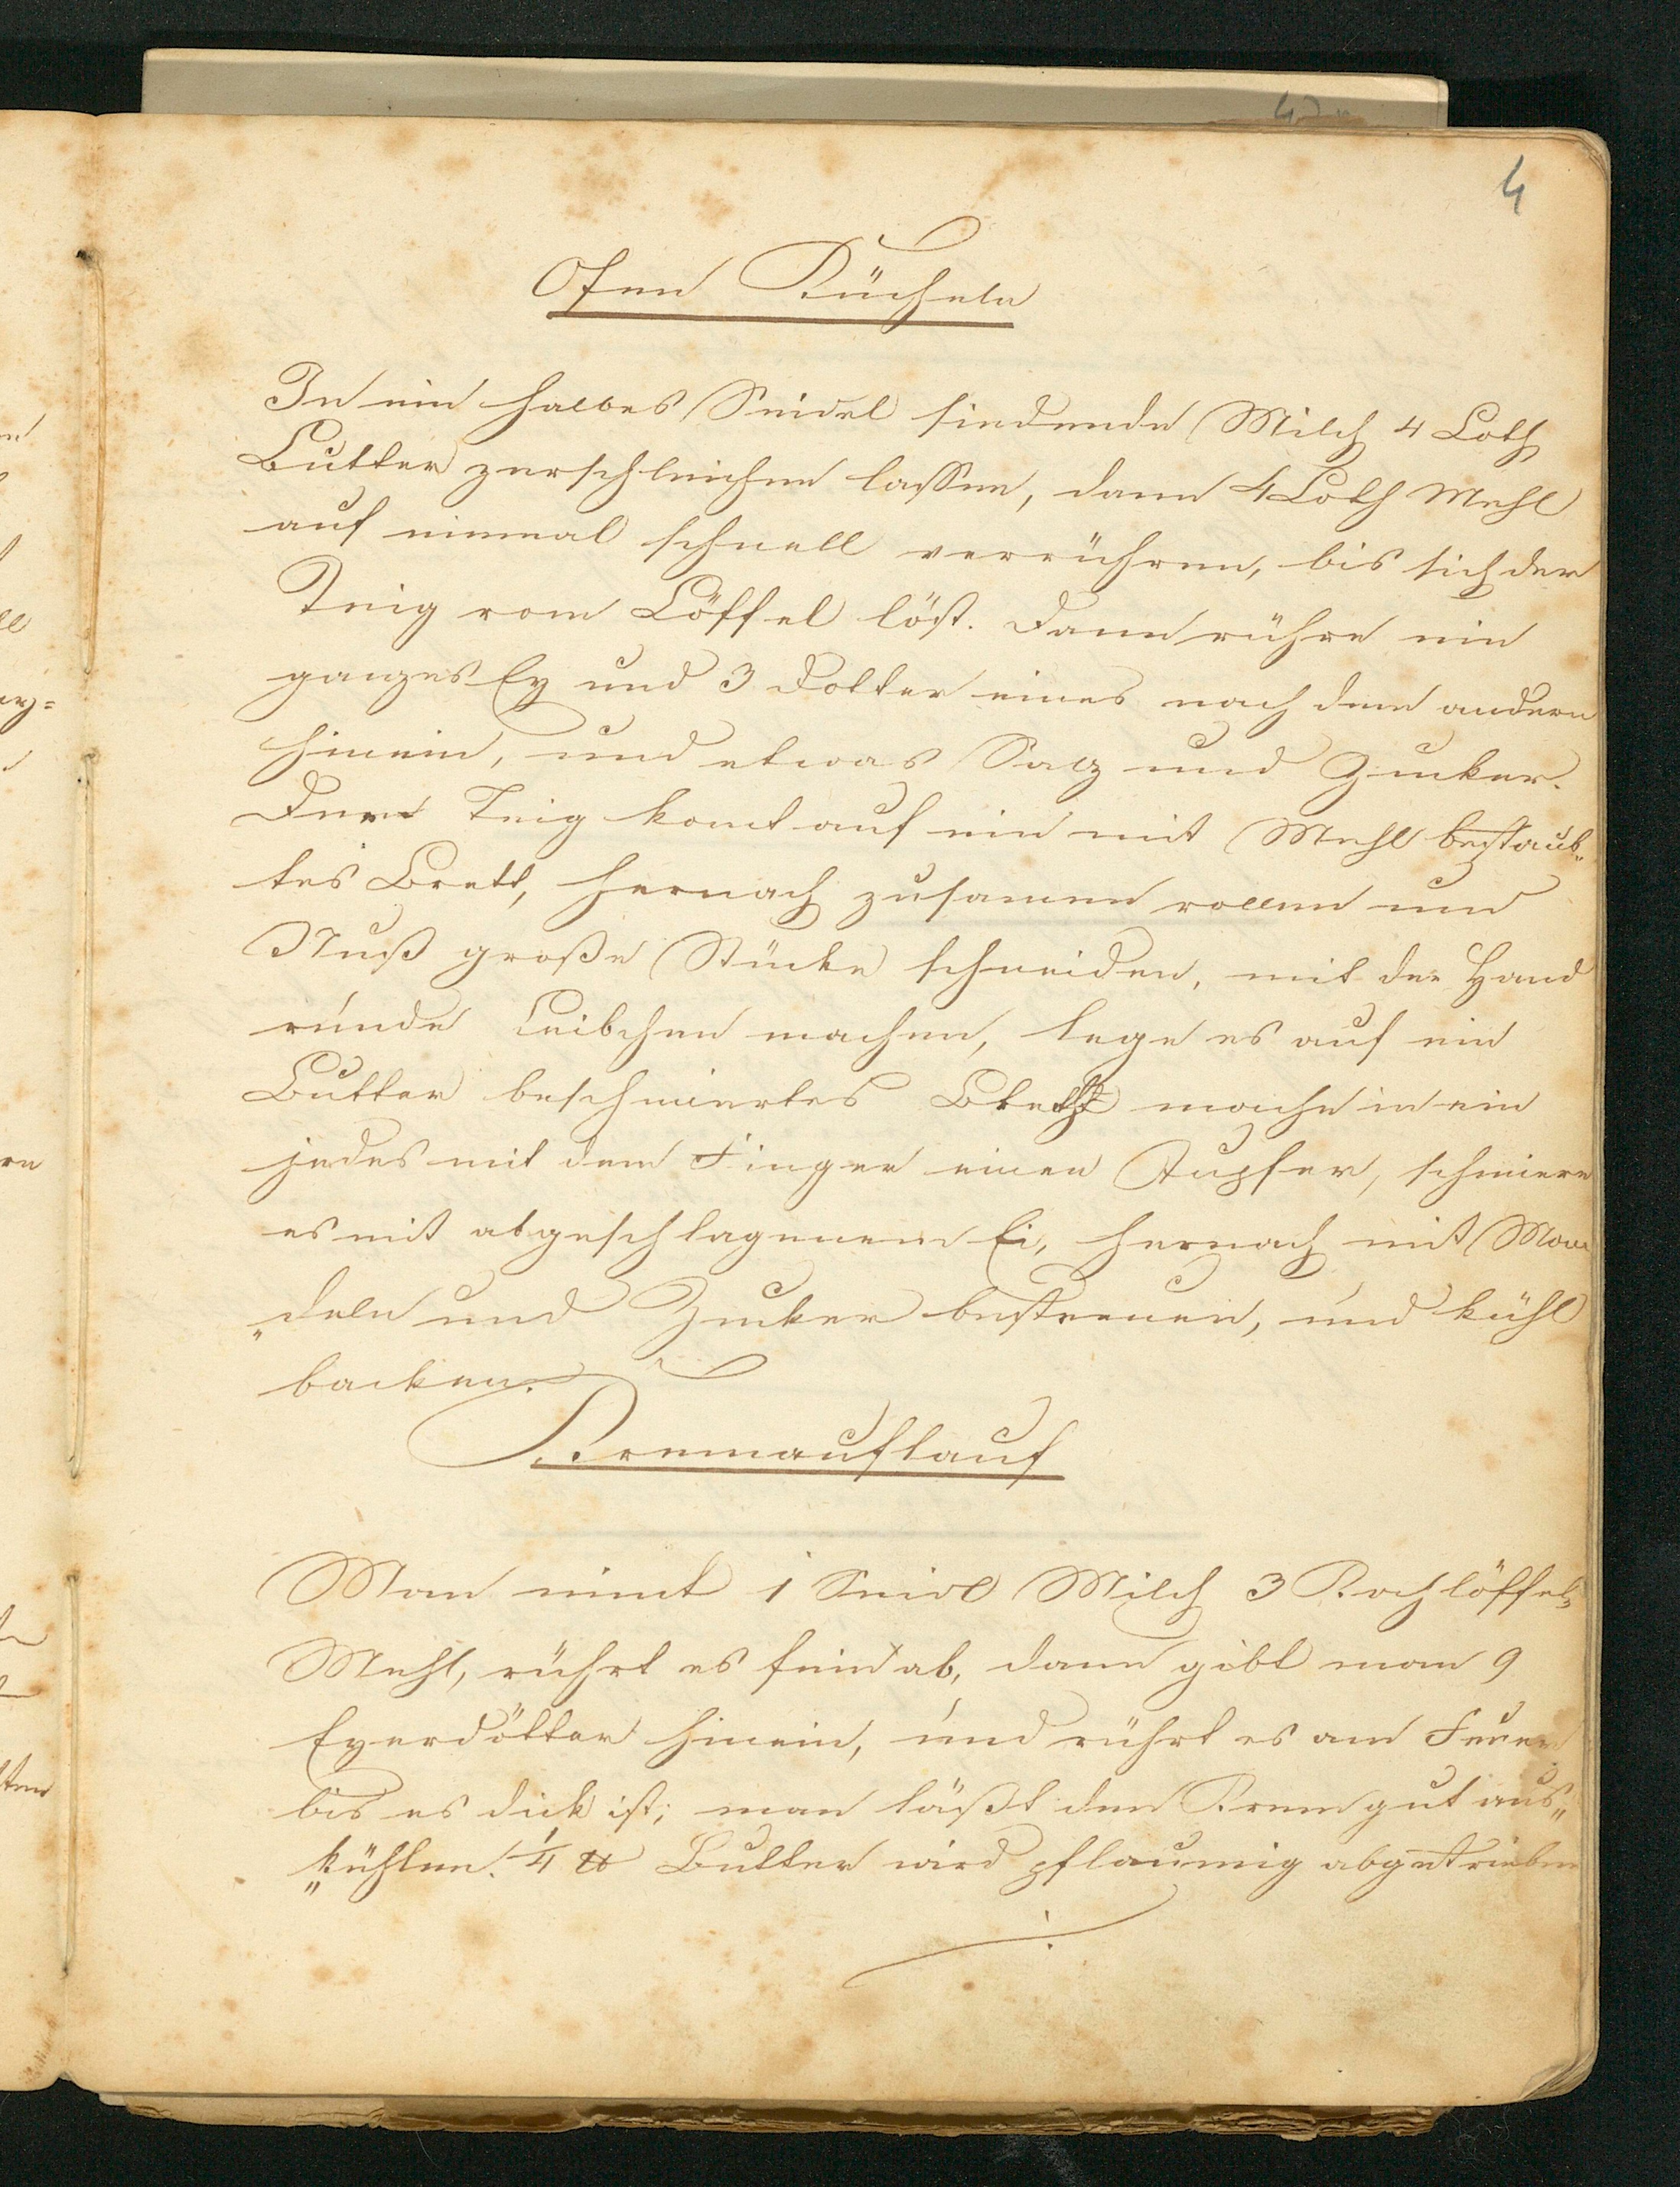 4
Ofen Kücheln
In ein halbes Seidel siedende Milch 4 Loth
Butter zerschleichen lassen, dann 4 Loth Mehl
auf einmal schnell verrühren, bis sich der
Teig vom Löffel löst. Dann rühre ein
ganzes Ey und 3 Dotter eines nach dem andern
hinein, und etwas Salz und Zucker.
Der Teig komt auf ein mit Mehl bestaub„
tes Brett, hernach zusamen rollen und
Nuß große Stücke schneiden, mit der Hand
runde Leibchen machen, lege es auf ein
Butter beschmiertes Blech mache in ein
jedes mit dem Finger einen Tupfer, schmiere
es mit abgeschlagenem Ei, hernach mit Man
„deln und Zucker bestreuen, und kühl
backen.
Kremauflauf
Man nimt 1 Seidl Milch 3 Kochlöffel
Mehl, rührt es fein ab, dann gibt man 9
Eyerdötter hinein, und rührt es am Feuer
bis es dick ist; man läßt den Krem gut aus„
„kühlen. 1/4 ℔ Butter wird pflaumig abgetrieben